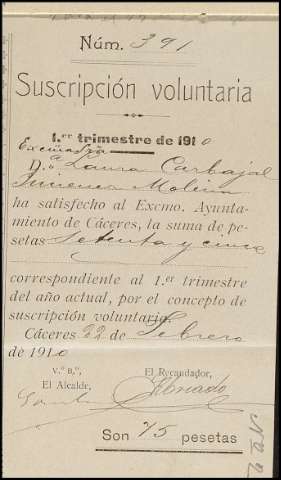 Núm. 391
Suscripción voluntaria
1.er trimestre de 1910
Excma Sra
D.ª Laura Carbajal
Jimenez Molina
ha satisfecho al Excmo. Ayunta-
miento de Cáceres, la suma de pe-
setas Setenta y cinco
correspondiente al 1.er trimestre
del año actual, por el concepto de
suscripción voluntaria.
Cáceres 22 de Febrero
de 1910
V.º B.º,
El Alcalde,
El Recaudador,
Son 75 pesetas